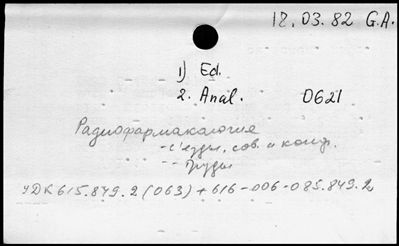 12.03.82 G.A.
1) Ed.
2. Anal. 0621
Радиофармакология
- съезды, сов. и конф.
-- Труды
УДК 615.849.2 (063) + 616-006-085.849.2